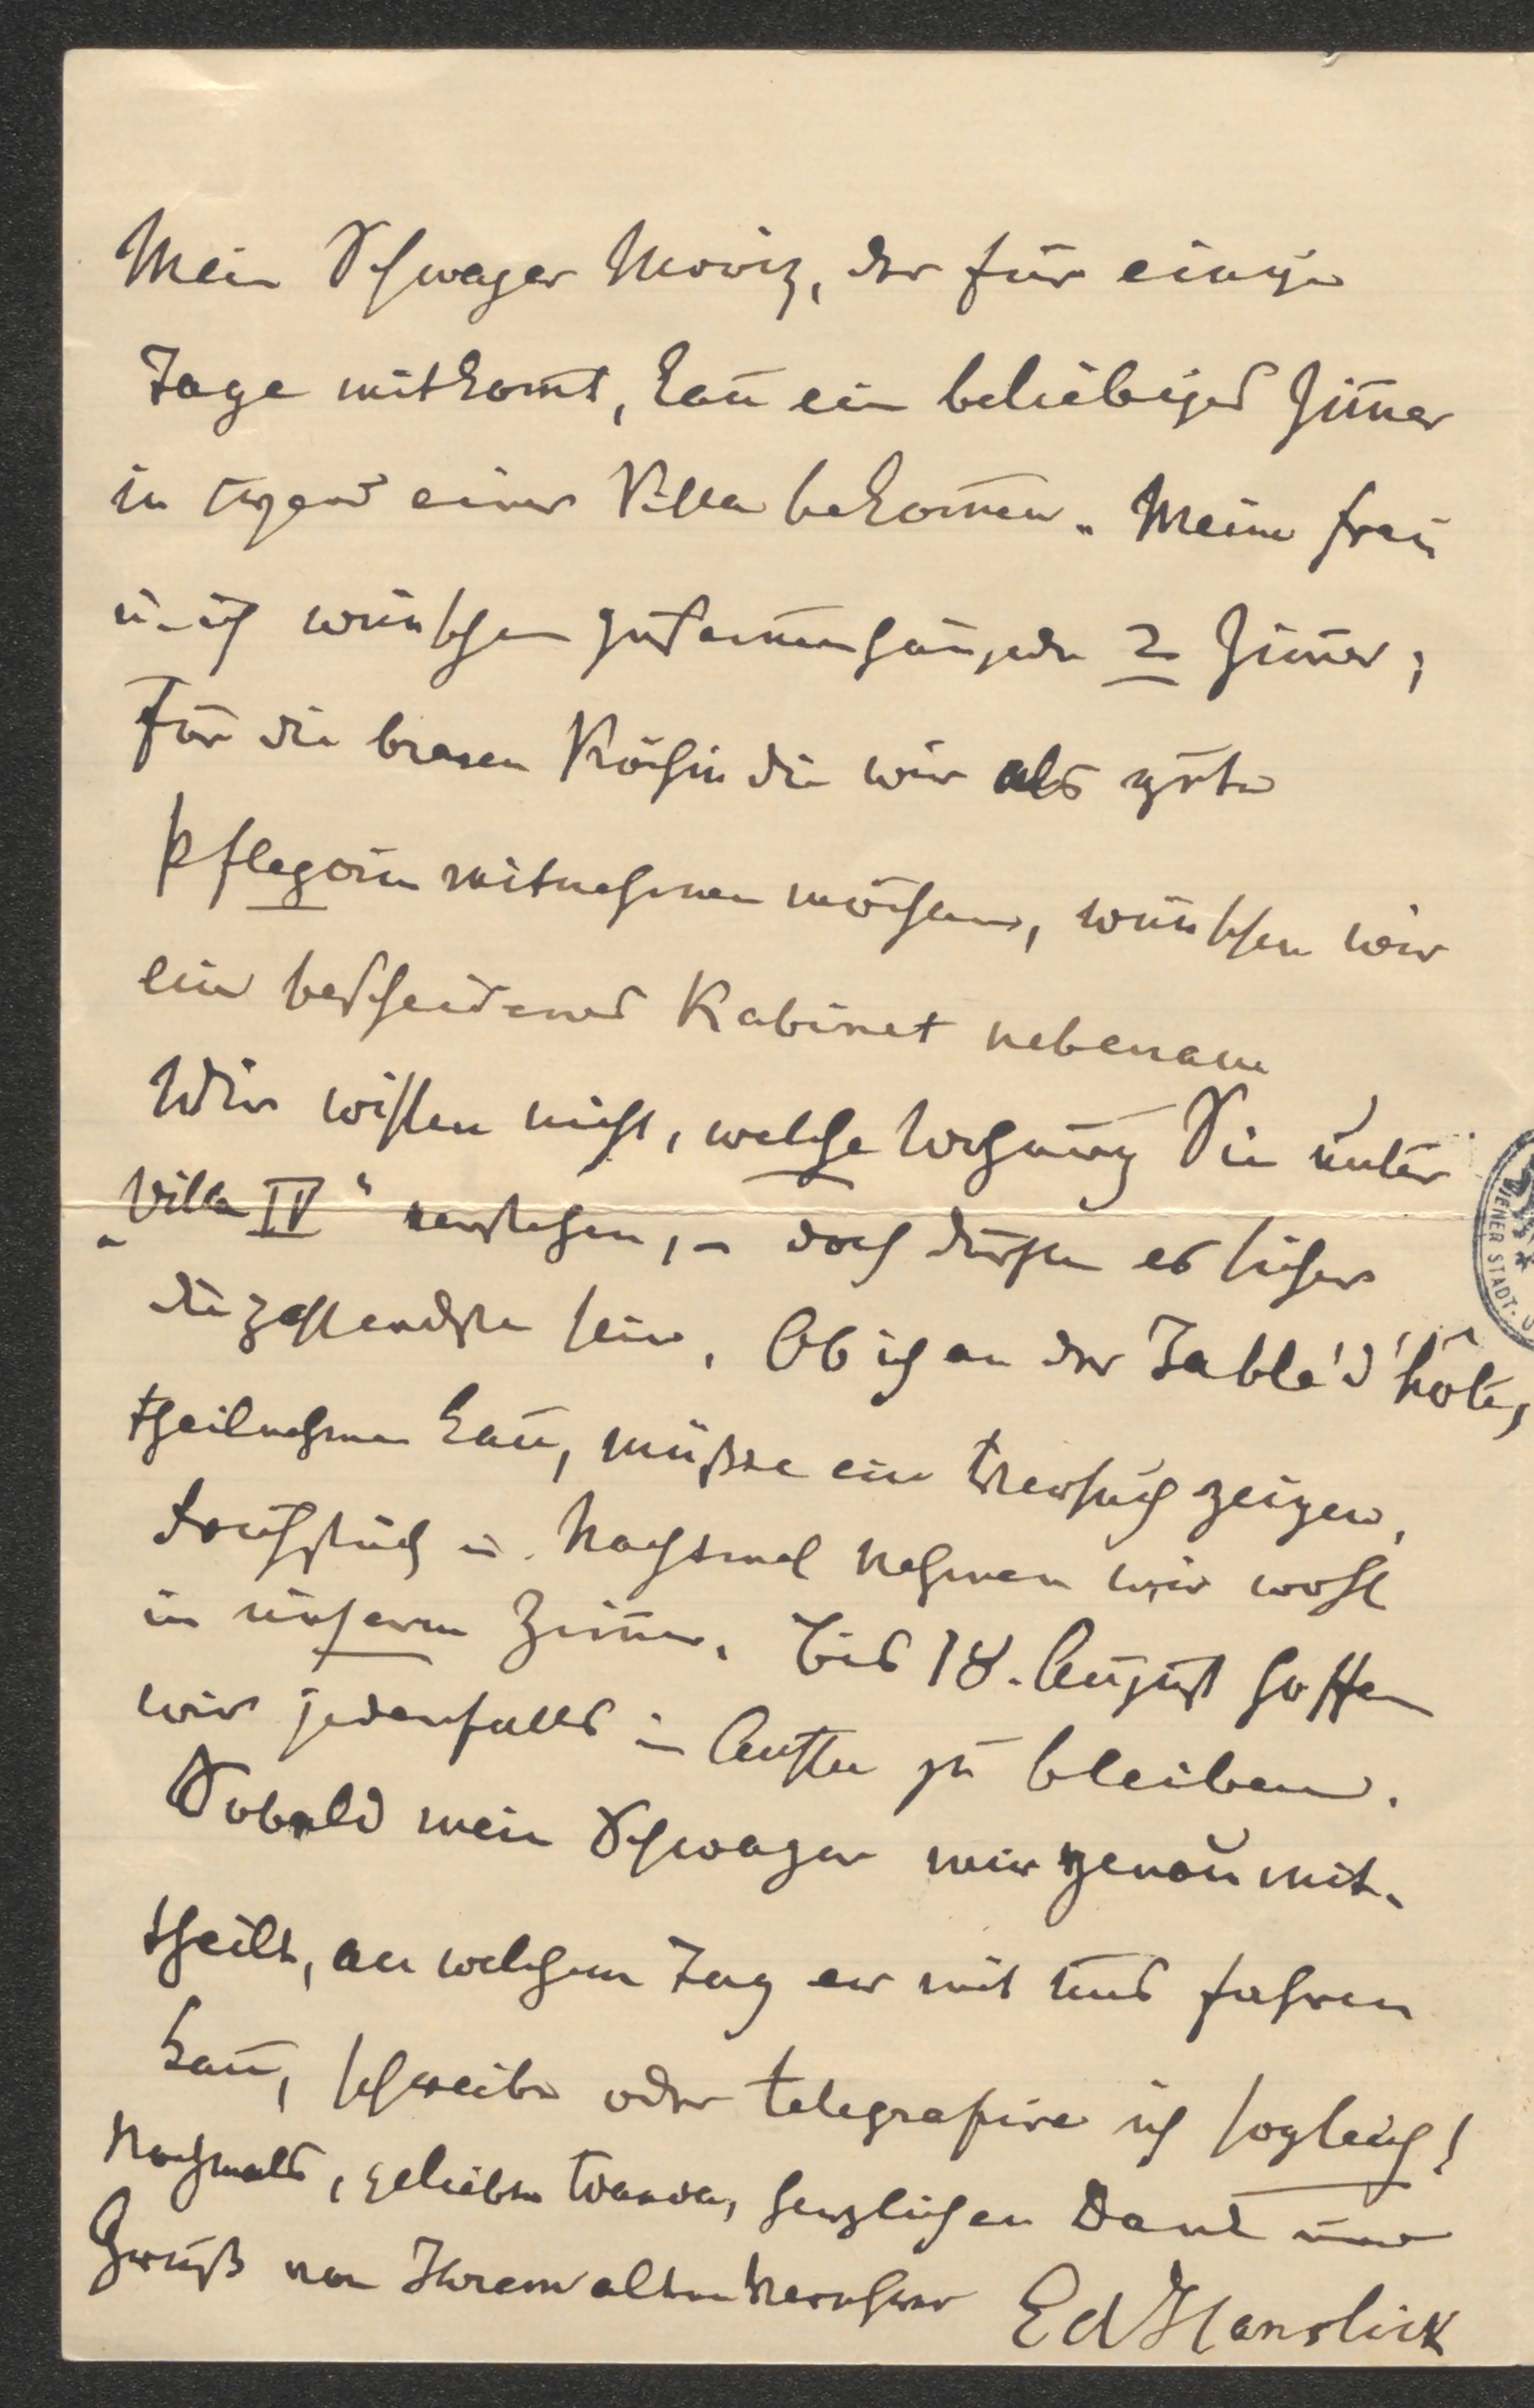 Mein Schwager Moriz, der für einige
Tage mitkom̄t, kan̄ ein beliebiges Zim̄er
in irgend einer Villa bekom̄en. Meine Frau
u. ich wünschen zusam̄enhängende 2 Zim̄er;
Für die braven Köchin die wir als gute
Pflegerin mitnehmen möchten, wünschen wir
ein bescheidenes Kabinet nebenan
Wir wissen nicht, welche Wohnung Sie unter
„Villa IV" verstehen, – doch dürfte es sicher
die passendste sein. Ob ich an der Table d'hôte,
theilnehmen kan̄, müßte ein Versuch zeigen,
Frühstück u. Nachtmal nehmen wir wohl
in unserm Zim̄er. Bis 18. August hoffen
wir jedenfalls in Aussee zu bleiben.
Sobald mein Schwager mir genau mit-
theilt, an welchem Tag er mit uns fahren
kan̄, schreibe oder telegrafire ich sogleich!
Nochmals, geliebte Wanda, herzlichen Dank und
Gruß von Ihrem alten Verehrer Ed Hanslick
WIENER STADT-